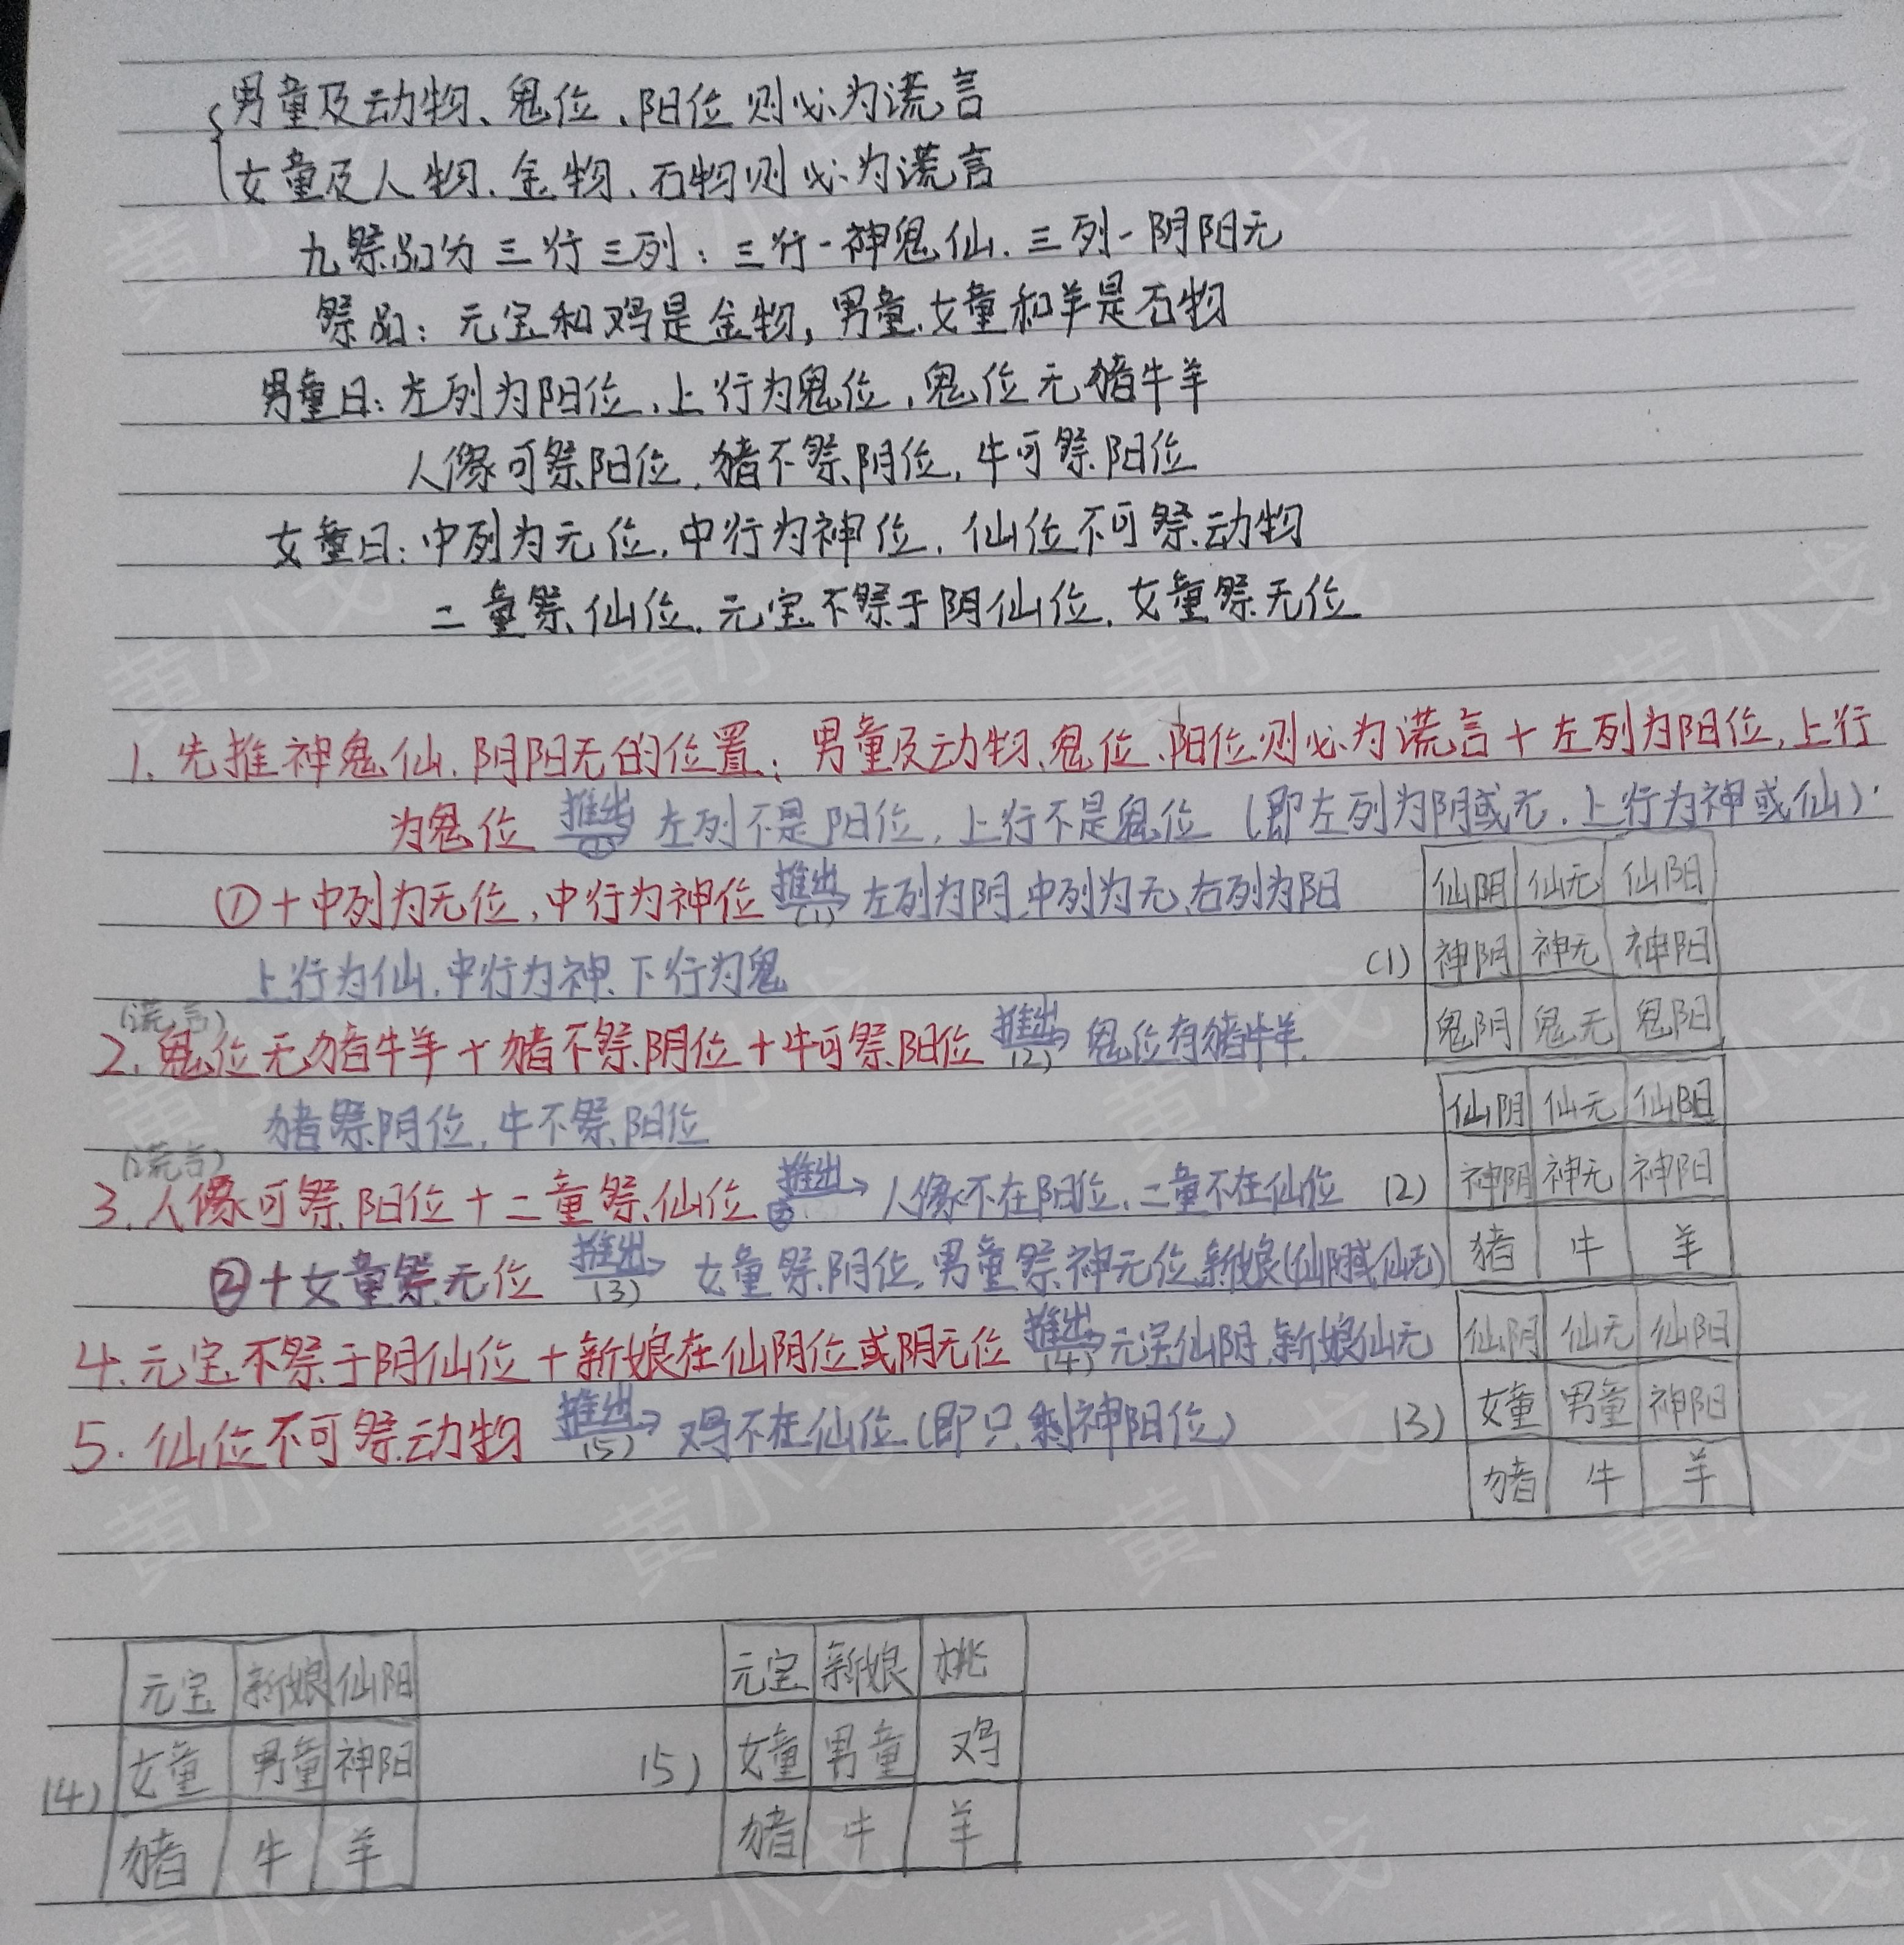 男童及动物、鬼位、阳位则必为谎言
女童及人物、金物、石物则必为谎言
九祭品为三行三列：三行-神鬼仙. 三列-阴阳无
祭品：元宝和鸡是金物, 男童、女童和羊是石物
男童曰：左列为阳位, 上行为鬼位, 鬼位无猪牛羊
人像可祭阳位, 猪不祭阴位, 牛可祭阳位
女童曰：中列为无位, 中行为神位, 仙位不可祭动物
二童祭仙位, 元宝不祭于阴仙位, 女童祭无位
1. 先推神鬼仙、阴阳无的位置：男童及动物、鬼位、阳位则必为谎言+左列为阳位, 上行
为鬼位 推出① 左列不是阳位, 上行不是鬼位 (即左列为阴或无, 上行为神或仙)
①+中列为无位, 中行为神位 推出(1) 左列为阴、中列为无、右列为阳
上行为仙、中行为神、下行为鬼
(1)
仙阴 仙无 仙阳
神阴 神无 神阳
鬼阴 鬼无 鬼阳
(谎言)
2. 鬼位无猪牛羊+猪不祭阴位+牛可祭阳位 推出(2) 鬼位有猪牛羊
猪祭阴位, 牛不祭阳位
(2)
仙阴 仙无 仙阳
神阴 神无 神阳
猪 牛 羊
(谎言)
3. 人像可祭阳位+二童祭仙位 推出② 人像不在阳位、二童不在仙位
②+女童祭无位 推出(3) 女童祭阴位, 男童祭神无位, 新娘(仙阴或仙无)
(3)
仙阴 仙无 仙阳
女童 男童 神阳
猪 牛 羊
4. 元宝不祭于阴仙位+新娘在仙阴位或阴无位 推出(4) 元宝仙阴, 新娘仙无
5. 仙位不可祭动物 推出(5) 鸡不在仙位 (即只剩神阳位)
(4)
元宝 新娘 仙阳
女童 男童 神阳
猪 牛 羊
(5)
元宝 新娘 桃
女童 男童 鸡
猪 牛 羊
黄小戈